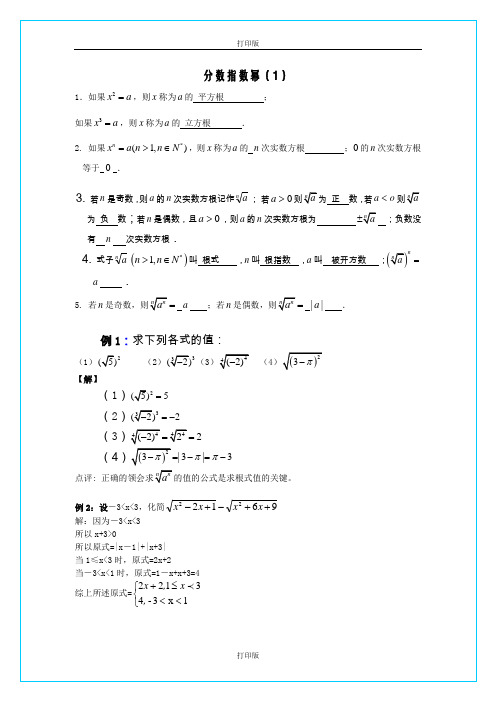 打印版
分数指数幂（1）
1. 如果x² = a，则x称为a的 平方根 ；
如果x³ = a，则x称为a的 立方根 ．
2. 如果xⁿ = a(n > 1, n ∈ N*)，则x称为a的 n次实数方根 ；0的n次实数方根
等于 0 ．
3. 若n是奇数，则a的n次实数方根记作ⁿ√a ；若a > 0则ⁿ√a为 正 数，若a < o则ⁿ√a
为 负 数；若n是偶数，且a > 0，则a的n次实数方根为 ±ⁿ√a ；负数没
有 n 次实数方根．
4. 式子ⁿ√a (n > 1, n ∈ N*)叫 根式 ，n叫 根指数 ，a叫 被开方数 ；(ⁿ√a)ⁿ =
a ．
5. 若n是奇数，则ⁿ√aⁿ = a ；若n是偶数，则ⁿ√aⁿ = |a| ．
例1：求下列各式的值：
（1）(√5)² （2）(³√-2)³（3）⁴√(-2)⁴ （4）√(3-π)²
【解】
（1）(√5)² = 5
（2）(³√-2)³ = -2
（3）⁴√(-2)⁴ = ⁴√2⁴ = 2
（4）√(3-π)² =|3-π|=π-3
点评: 正确的领会求ⁿ√aⁿ的值的公式是求根式值的关键。
例2：设－3<x<3，化简√x²-2x+1-√x²+6x+9
解：因为－3<x<3
所以x+3>0
所以原式=|x－1|+|x+3|
当1≤x<3时，原式=2x+2
当－3<x<1时，原式=1－x+x+3=4
综上所述原式={2x+2,1≤x≺3
4, -3 < x < 1
打印版